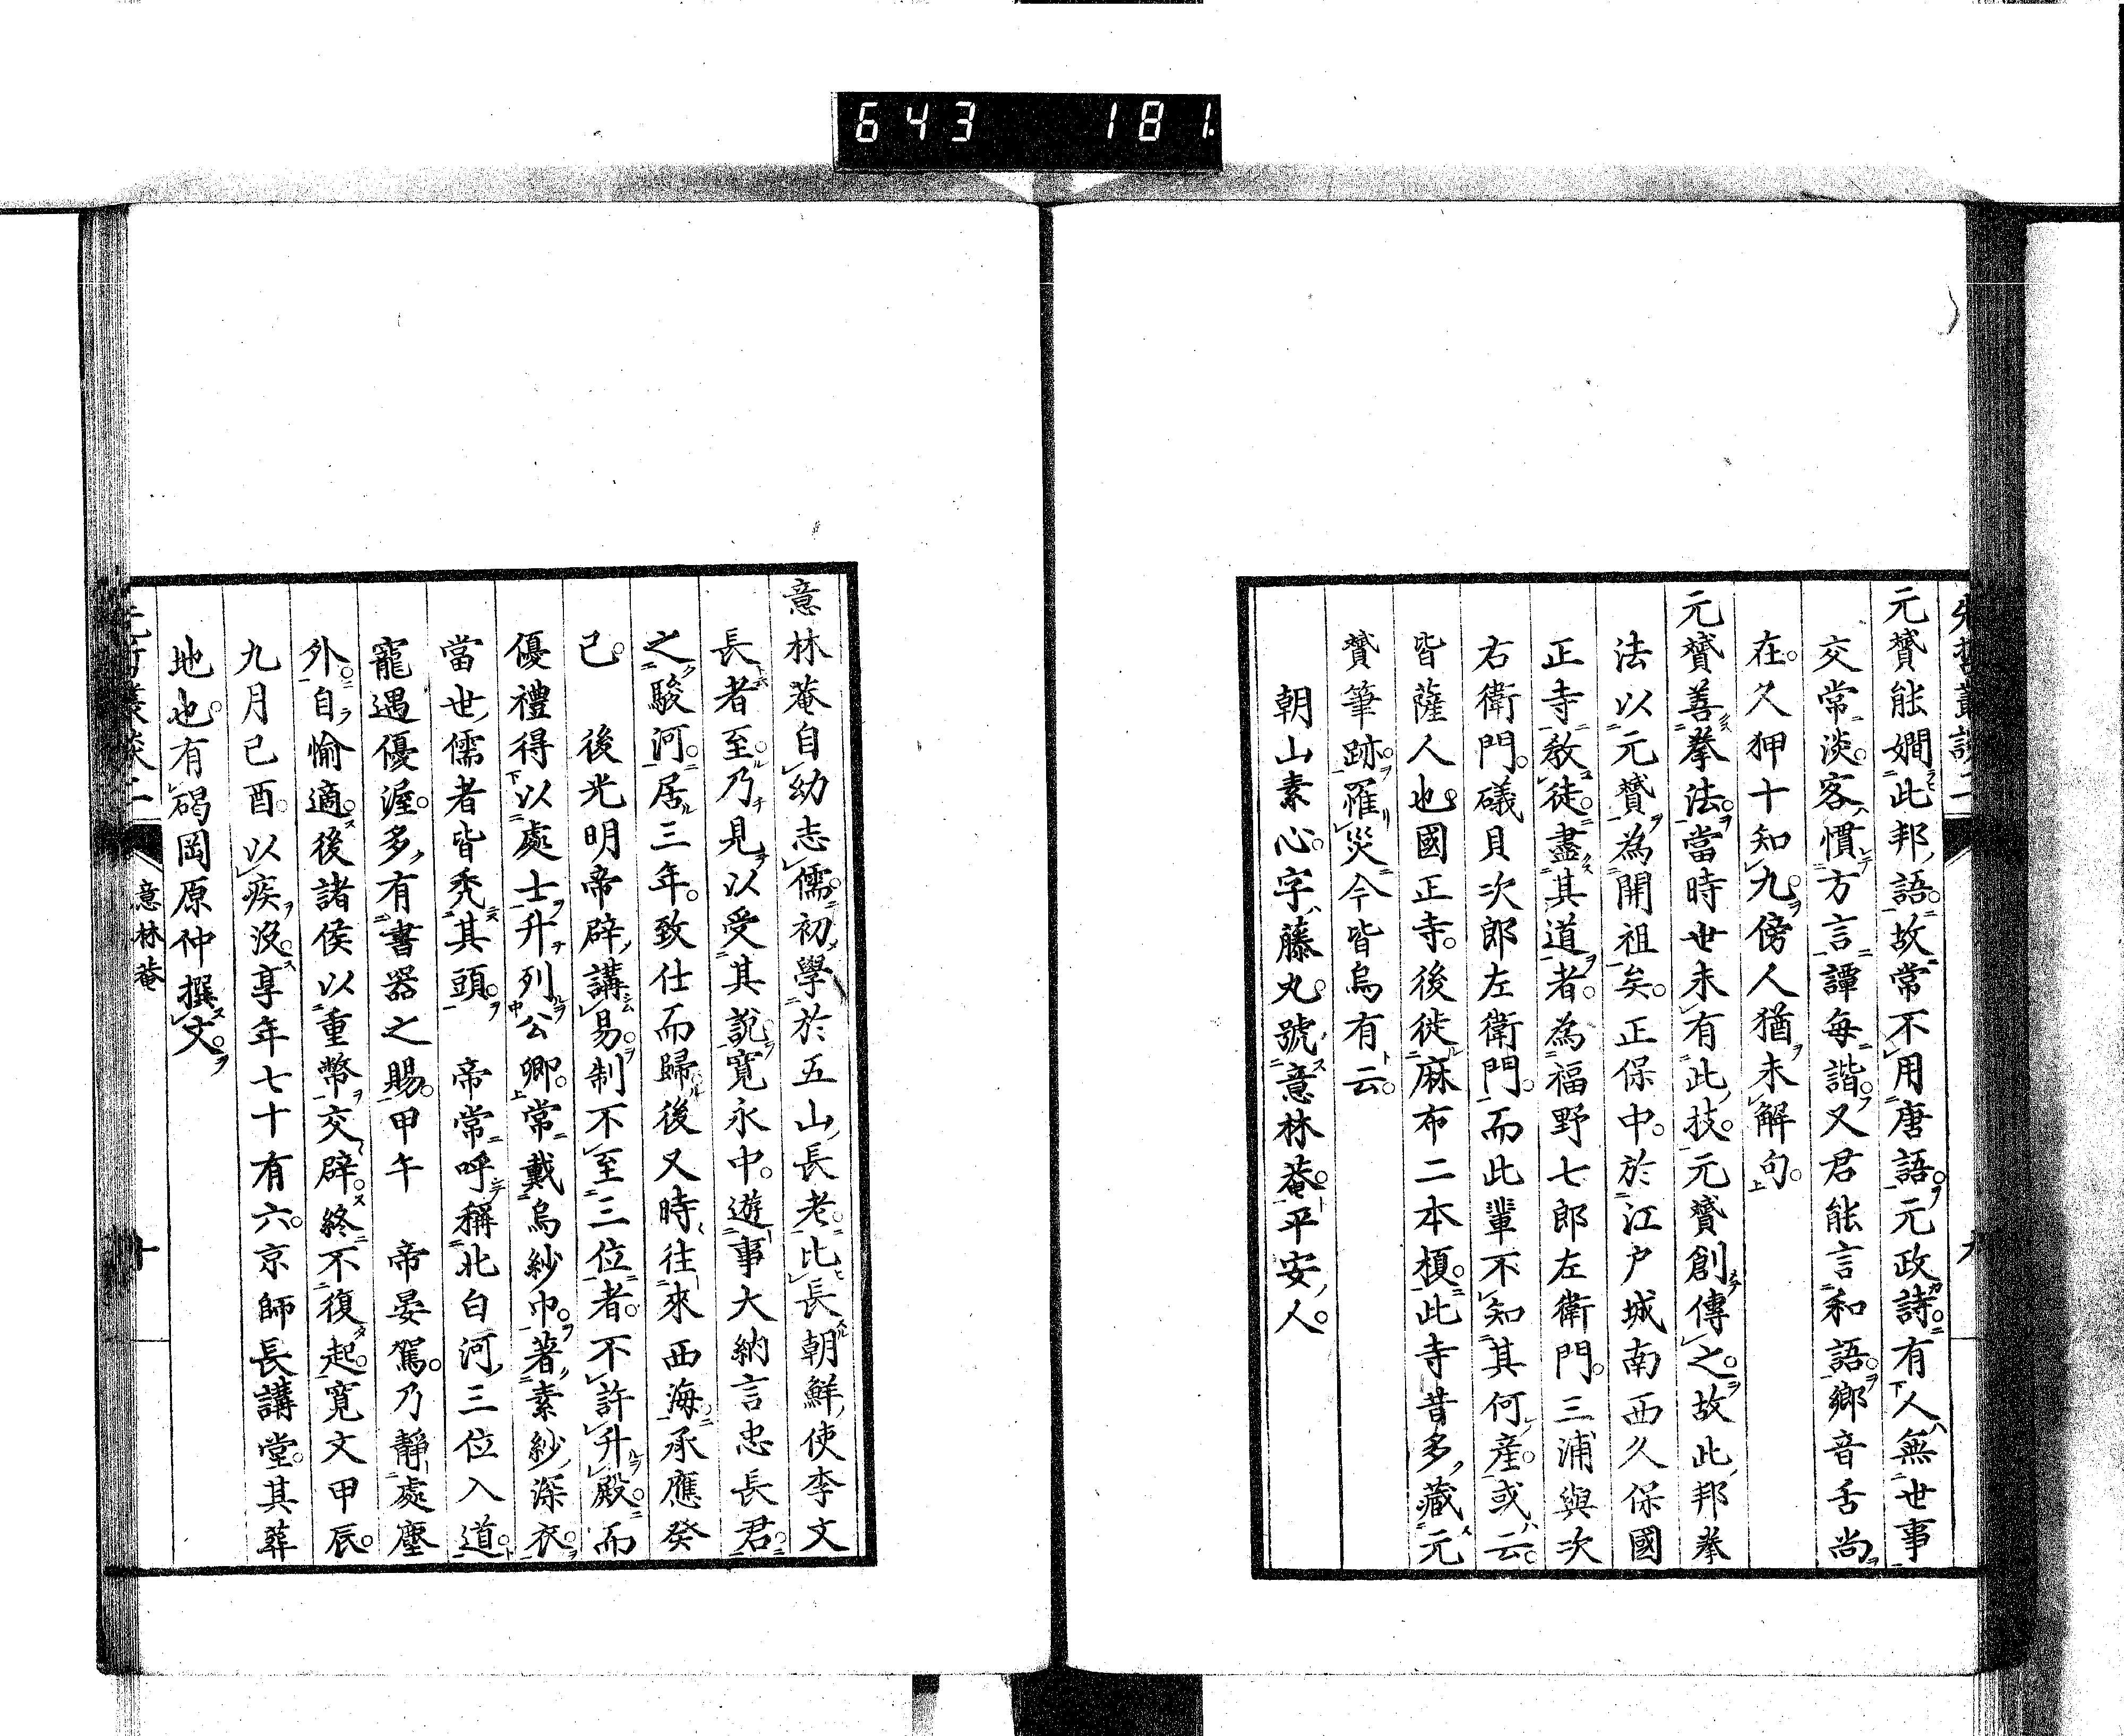 643 181
元贇能嫺此邦語。故常不用唐語。元政詩。有人無世事
交常淡。客慣方言譚每諧。又君能言和語。鄉音舌尚
在。久狎十知九。傍人猶未解句。
元贇善拳法。當時世未有此技。元贇創傳之。故此邦拳
法以元贇為開祖矣。正保中。於江戶城南西久保國
正寺教徒。盡其道者。為福野七郎左衛門。三浦與次
右衛門。礒貝次郎左衛門。而此輩不知其何產。或云。
皆薩人也。國正寺。後徙麻布二本榎。此寺昔多藏元
贇筆跡。罹災今皆烏有云。
朝山素心。字藤丸。號意林菴。平安人。
意林菴自幼志儒。初學於五山長老。比長朝鮮使李文
長者至。乃見以受其說。寬永中。遊事大納言忠長君。
之駿河。居三年。致仕而歸。後又時往來西海。承應癸
巳。後光明帝辟講易。制不至三位者。不許升殿。而
優禮得以處士升列公卿。常戴烏紗巾。著素紗深衣。
當世儒者皆禿其頭。帝常呼稱北白河三位入道。
寵遇優渥。多有書器之賜。甲午帝晏駕。乃靜處塵
外。自愉適。後諸侯以重幣交辟。終不復起。寬文甲辰。
九月己酉。以疾沒。享年七十有六。京師長講堂。其葬
地也。有碣岡原仲撰文。
意林菴